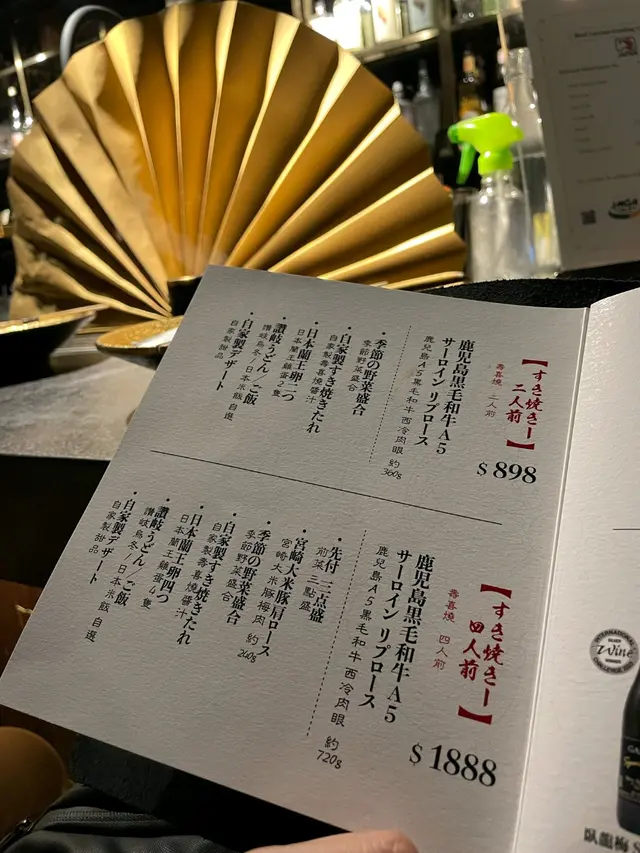 【すき焼きー
二人前】
壽喜燒 二人前
$898
鹿児島黒毛和牛A5
サーロイン リブロース
鹿兒島A5黒毛和牛西冷肉眼 約360g
・季節の野菜盛合
季節野菜盛合
・自家製すき焼きたれ
自家製壽喜燒醬汁
・日本蘭王卵二つ
日本蘭王雞蛋2隻
・讃岐うどん/ご飯
讃岐烏冬/日本米飯 自選
・自家製デザート
自家製甜品
【すき焼きー
四人前】
壽喜燒 四人前
$1888
鹿児島黒毛和牛A5
サーロイン リブロース
鹿兒島A5黒毛和牛西冷肉眼 約720g
・先付 三点盛
前菜三點盛
・宮崎大米豚肩ロース
宮崎大米豚梅肉 約260g
・季節の野菜盛合
季節野菜盛合
・自家製すき焼きたれ
自家製壽喜燒醬汁
・日本蘭王卵四つ
日本蘭王雞蛋4隻
・讃岐うどん/ご飯
讃岐烏冬/日本米飯 自選
・自家製デザート
自家製甜品
INTERNATIONAL
Wine
CHALLENGE
臥龍梅